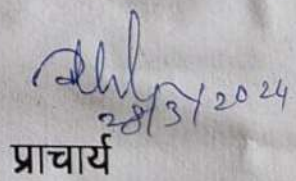 28/3/2024
प्राचार्य